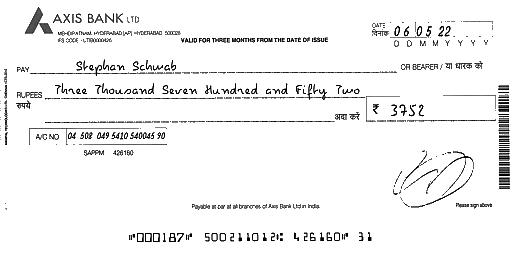 AXIS BANK LTD
MEHDIPATNAM, HYDERABAD[AP] HYDERABAD 500028
IFS CODE - UTIB0000426
VALID FOR THREE MONTHS FROM THE DATE OF ISSUE
DATE
दिनांक 06 05 22
D D M M Y Y Y Y
PAY Stephan Schwab OR BEARER / या धारक को
RUPEES Three Thousand Seven Hundred and Fifty Two
रुपये अदा करें ₹ 3752
A/C NO 04 508 049 5410 540045 90
SAPPM 426160
Payable at par at all branches of Axis Bank Ltd in India.
Please sign above
⑈000187⑈ 500211012⑆ 426160⑈ 31